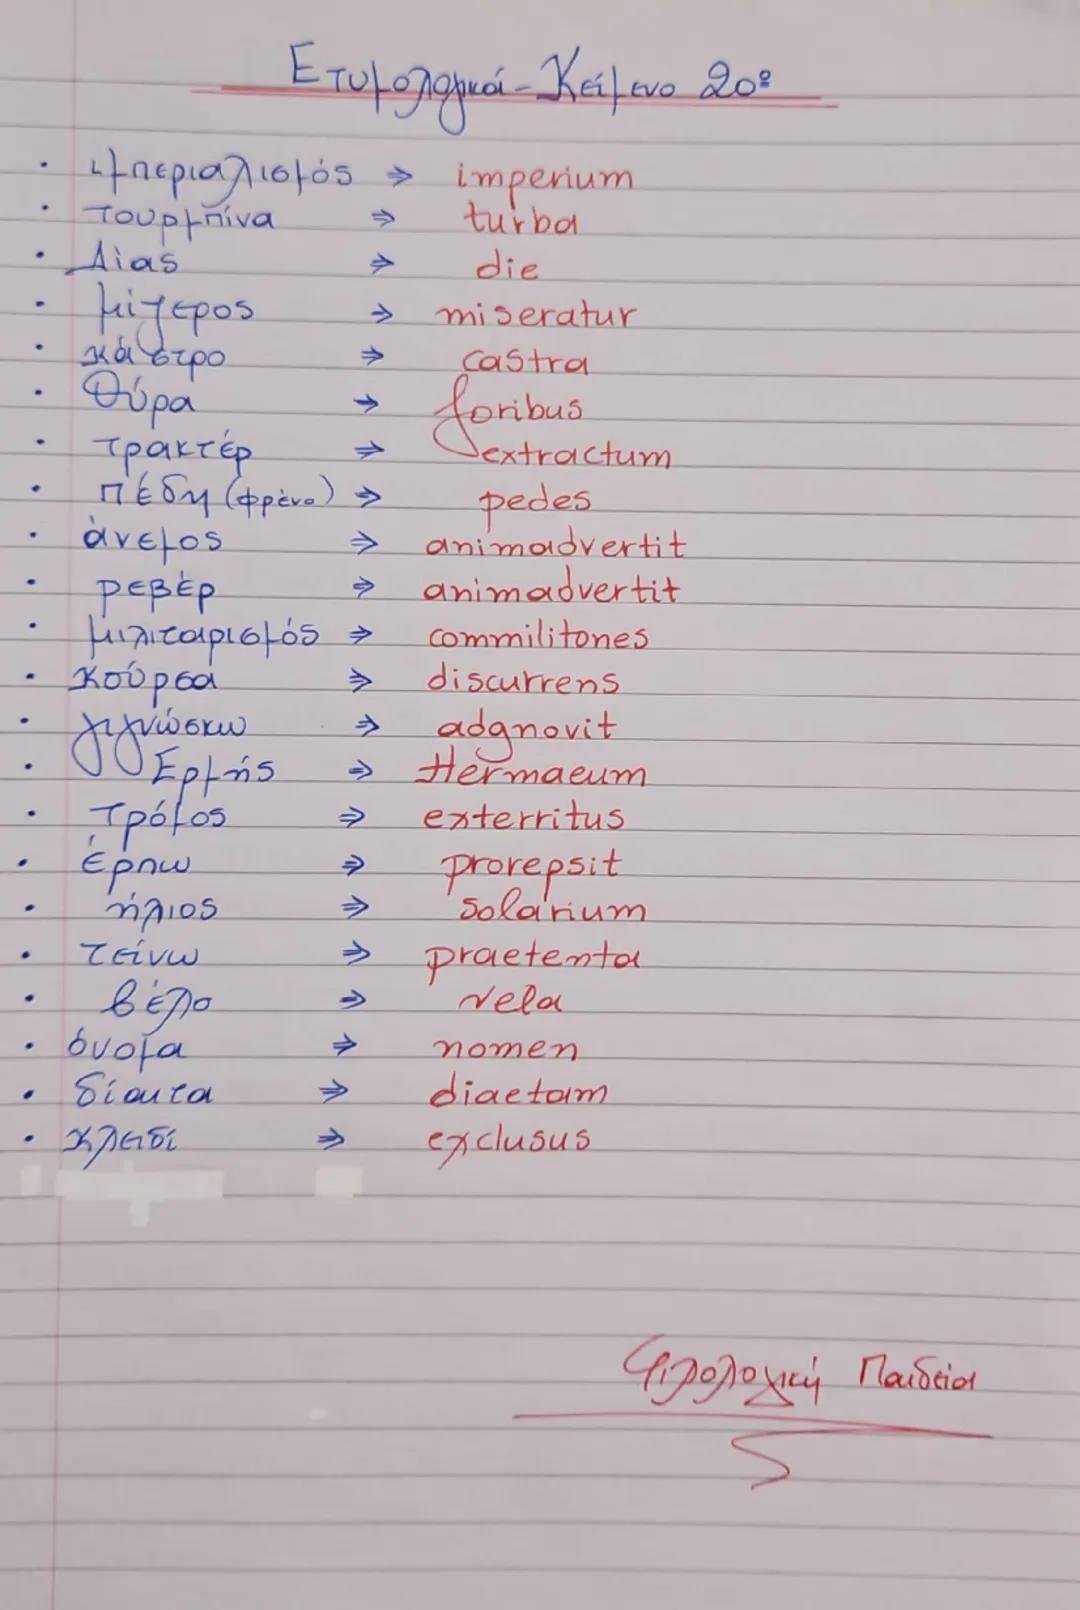 Ετυμολογικά - Κείμενο 20º
• ιμπεριαλισμός ⇒ imperium
• τουρμπίνα ⇒ turba
• Δίας ⇒ die
• μίζερος ⇒ miseratur
• κάστρο ⇒ castra
• θύρα ⇒ foribus
• τρακτέρ ⇒ extractum
• πέδη (φρένο) ⇒ pedes
• άνεμος ⇒ animadvertit
• ρεβέρ ⇒ animadvertit
• μιλιταρισμός ⇒ commilitones
• κούρσα ⇒ discurrens
• γιγνώσκω ⇒ adgnovit
• Ερμής ⇒ Hermaeum
• τρόμος ⇒ exterritus
• έρπω ⇒ prorepsit
• ήλιος ⇒ solarium
• τείνω ⇒ praetenta
• βέλο ⇒ vela
• όνομα ⇒ nomen
• δίαιτα ⇒ diaetam
• κλειδί ⇒ exclusus
Φιλολογική Παιδεία